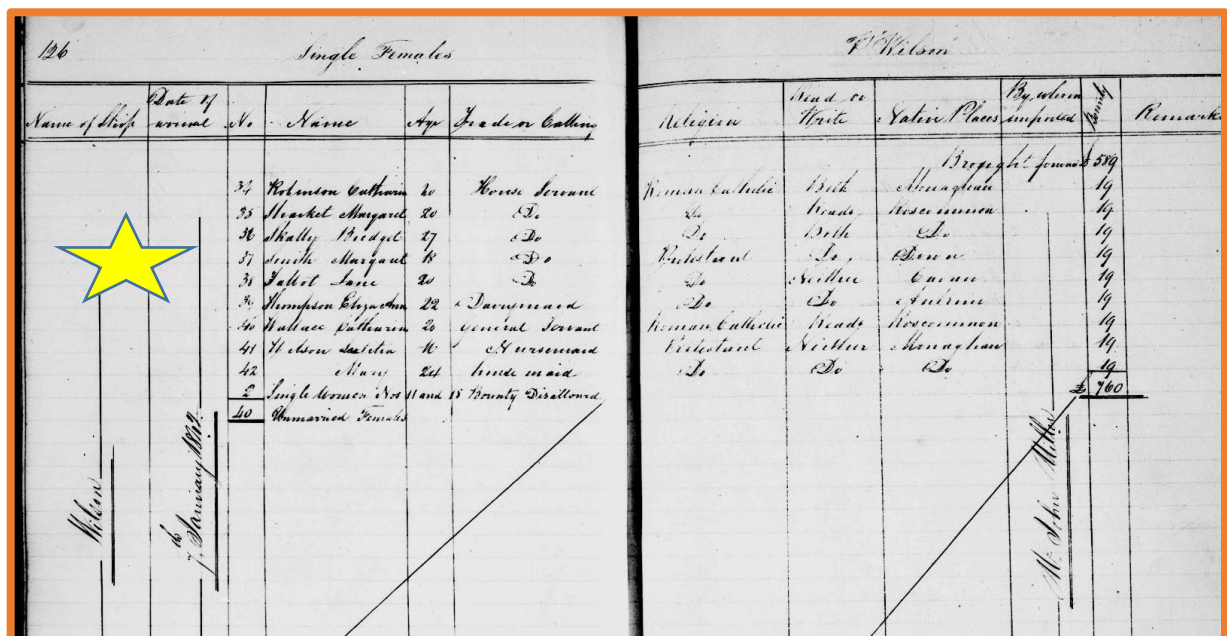 126 Single Females
Wilson
Name of Ship Date of arrival No Name Age Trade or Calling
Religion Read or Write Native Places By whom imported Bounty Remarks
Brought forward £ 589
34 Robinson Catharin 20 House Servant Roman Catholic Both Monaghan 19
35 Margaret 20 Do Do Reads Roscommon 19
36 Skally Bridget 27 Do Do Both Do 19
37 Smith Margaret 18 Do Protestant Do Down 19
38 Talbot Jane 20 Do Do Neither Cavan 19
39 Thompson Eliza Ann 22 Dairymaid Do Do Antrim 19
40 Wallace Catharin 20 General Servant Roman Catholic Reads Roscommon 19
41 Wilson Laetitia 16 Nursemaid Protestant Neither Monaghan 19
42 Mary 24 house maid Do Do Do 19
2 Single Women Nos 11 and 15 Bounty Disallowed £ 760
40 Unmarried Females
Wilson
7th January 1842
Mr John Miller